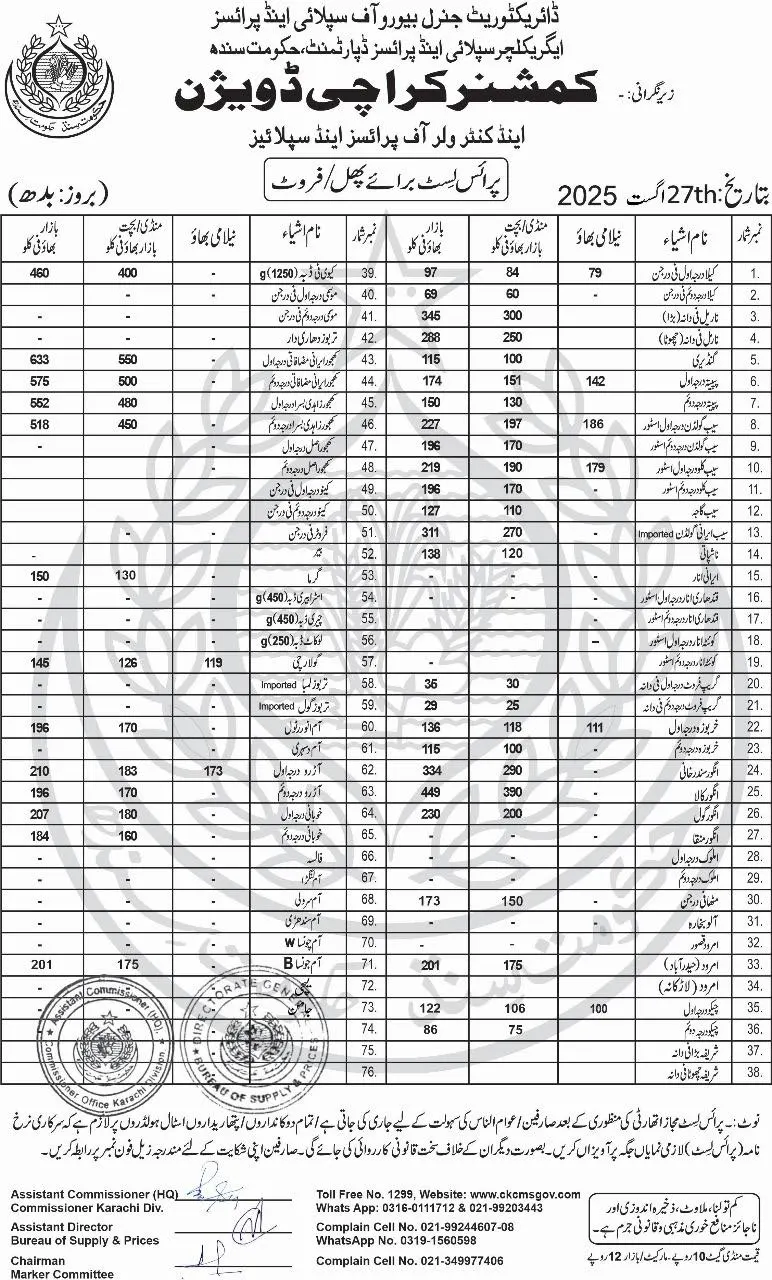 ڈائریکٹوریٹ جنرل بیورو آف سپلائی اینڈ پرائسز
ایگریکلچر سپلائی اینڈ پرائسز ڈپارٹمنٹ، حکومت سندھ
زیر نگرانی:- کمشنر کراچی ڈویژن
اینڈ کنٹرولر آف پرائسز اینڈ سپلائیز
بتاریخ: 27th اگست 2025 پرائس لسٹ برائے پھل/فروٹ (بروز: بدھ)
نمبر شمار نام اشیاء نیلامی بھاؤ منڈی/بچت بازار بھاؤ فی کلو بازار بھاؤ فی کلو
1. کیلا درجہ اول فی درجن 79 84 97
2. کیلا درجہ دوئم فی درجن - 60 69
3. ناریل فی دانہ (بڑا) 300 345
4. ناریل فی دانہ (چھوٹا) 250 288
5. گنڈیری 100 115
6. پپیتہ درجہ اول 142 151 174
7. پپیتہ درجہ دوئم 130 150
8. سیب گولڈن درجہ اول اسٹور 186 197 227
9. سیب گولڈن درجہ دوئم اسٹور - 170 196
10. سیب کلو درجہ اول اسٹور 179 190 219
11. سیب کلو درجہ دوئم اسٹور - 170 196
12. سیب گاچہ 110 127
13. سیب ایرانی گولڈن Imported 270 311
14. ناشپاتی 120 138
15. ایرانی انار - - -
16. قندھاری انار درجہ اول اسٹور - - -
17. قندھاری انار درجہ دوئم اسٹور - - -
18. کوئٹہ انار درجہ اول اسٹور –
19. کوئٹہ انار درجہ دوئم اسٹور - -
20. گریپ فروٹ درجہ اول فی دانہ - 30 35
21. گریپ فروٹ درجہ دوئم فی دانہ - 25 29
22. خربوزہ درجہ اول 111 118 136
23. خربوزہ درجہ دوئم - 100 115
24. انگور سندرخانی - 290 334
25. انگور کالا - 390 449
26. انگور گول - 200 230
27. انگور منقا - - -
28. املوک درجہ اول - - -
29. املوک درجہ دوئم - - -
30. مٹھا فی درجن - 150 173
31. آلو بخارہ - - -
32. امرود قصور - - -
33. امرود (حیدرآباد) - 175 201
34. امرود (لاڑکانہ) - - -
35. چیکو درجہ اول 100 106 122
36. چیکو درجہ دوئم - 75 86
37. شریفہ بڑا فی دانہ - - -
38. شریفہ چھوٹا فی دانہ - - -
نمبر شمار نام اشیاء نیلامی بھاؤ منڈی/بچت بازار بھاؤ فی کلو بازار بھاؤ فی کلو
39. کیوی فی ڈبہ (1250)g - 400 460
40. موسمی درجہ اول فی درجن - - -
41. موسمی درجہ دوئم فی درجن - - -
42. تربوز دھاری دار - - -
43. کھجور ایرانی مضافاتی درجہ اول - 550 633
44. کھجور ایرانی مضافاتی درجہ دوئم - 500 575
45. کھجور زاہدی بسرا درجہ اول - 480 552
46. کھجور زاہدی بسرا درجہ دوئم - 450 518
47. کھجور اصل درجہ اول - - -
48. کھجور اصل درجہ دوئم - - -
49. کینو درجہ اول فی درجن
50. کینو درجہ دوئم فی درجن
51. فروٹر فی درجن - -
52. بیر - -
53. گرما - 130 150
54. اسٹرابیری ڈبہ (450)g - - -
55. چیری ڈبہ (450)g - - -
56. لوکاٹ ڈبہ (250)g - - -
57. گولارچی 119 126 145
58. تربوز لمبا Imported - - -
59. تربوز گول Imported - - -
60. آم انور رٹول - 170 196
61. آم دسہری - - -
62. آڑو درجہ اول 173 183 210
63. آڑو درجہ دوئم - 170 196
64. خوبانی درجہ اول - 180 207
65. خوبانی درجہ دوئم - 160 184
66. فالسہ - - -
67. آم لنگڑا - - -
68. آم سرولی - - -
69. آم سندھڑی - - -
70. آم چونسا W - - -
71. آم چونسا B - 175 201
72. لیچی
73. جامن
74.
75.
76.
Assistant Commissioner (HQ).
Commissioner Office Karachi Division
DIRECTORATE GENERAL
BUREAU OF SUPPLY & PRICES
نوٹ:- پرائس لسٹ مجاز اتھارٹی کی منظوری کے بعد صارفین/عوام الناس کی سہولت کے لیے جاری کی جاتی ہے/تمام دوکانداروں/پتھاریداروں اسٹال ہولڈروں پر لازم ہے کہ سرکاری نرخ
نامہ (پرائس لسٹ) لازمی نمایاں جگہ پر آویزاں کریں۔ بصورت دیگر ان کے خلاف سخت قانونی کارروائی کی جائے گی۔ صارفین اپنی شکایت کے لئے مندرجہ ذیل فون نمبر پر رابطہ کریں۔
Assistant Commissioner (HQ)
Commissioner Karachi Div.
Assistant Director
Bureau of Supply & Prices
Chairman
Marker Committee
Toll Free No. 1299, Website: www.ckcmsgov.com
Whats App: 0316-0111712 & 021-99203443
Complain Cell No. 021-99244607-08
WhatsApp No. 0319-1560598
Complain Cell No. 021-349977406
کم تولنا، ملاوٹ، ذخیرہ اندوزی اور
ناجائز منافع خوری مذہبی و قانونی جرم ہے۔
قیمت منڈی گیٹ 10 روپے۔ مارکیٹ/بازار 12 روپے